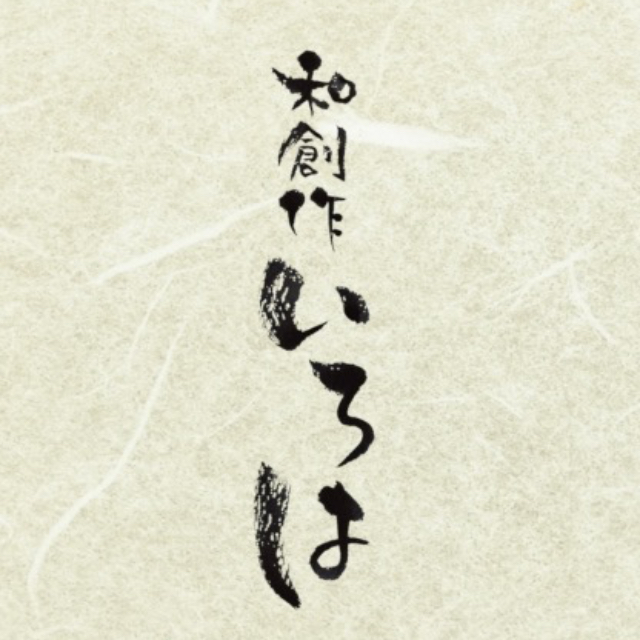 和創作いろは